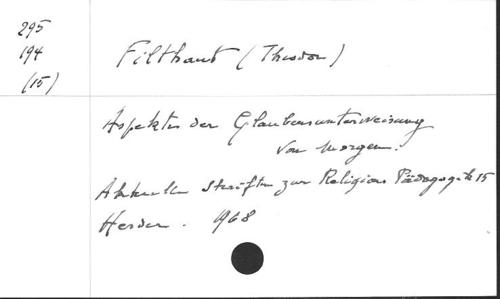 295
194
(15)
Filthaut (Theodor)
Aspekte der Glaubensunterweisung
von morgen.
Aktuelle Schriften zur Religions Pädagogik 15
Herder. 1968